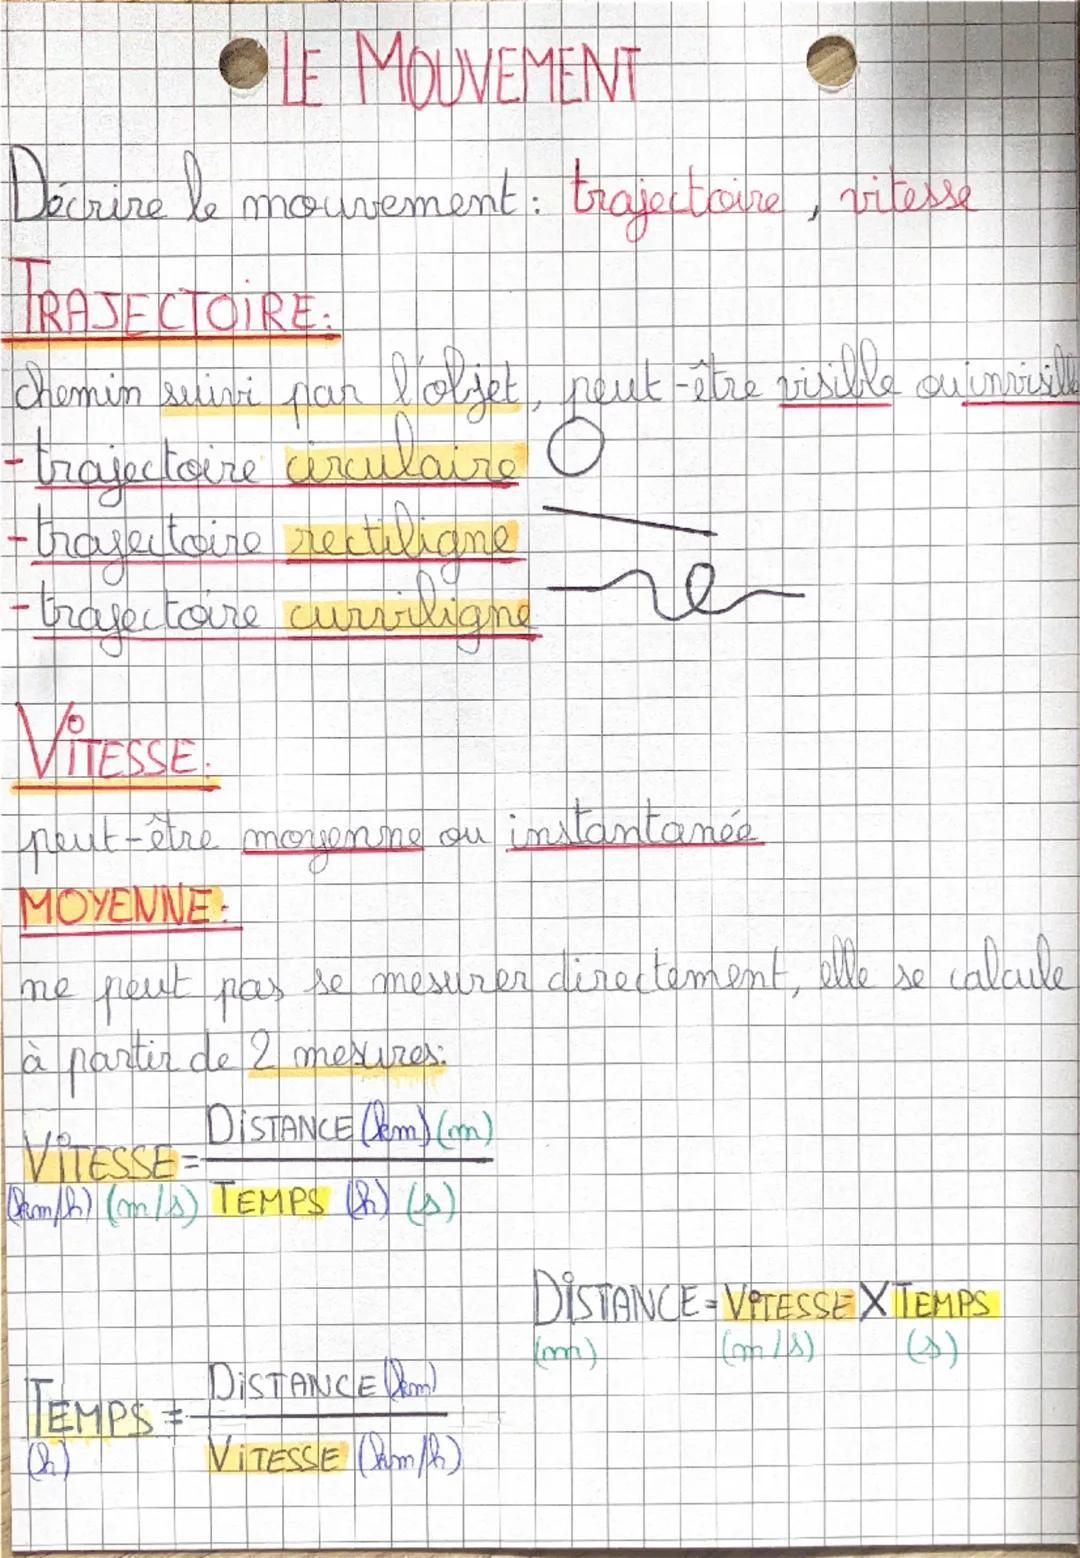 LE MOUVEMENT
Décrire le mouvement : trajectoire, vitesse
TRAJECTOIRE :
chemin suivi par l'objet, peut-être visible ou invisible
- trajectoire circulaire
- trajectoire rectiligne
- trajectoire curviligne
VITESSE :
peut-être moyenne ou instantanée
MOYENNE :
ne peut pas se mesurer directement, elle se calcule
à partir de 2 mesures :
DISTANCE (km) (m)
VITESSE =
(km/h) (m/s) TEMPS (h) (s)
DISTANCE = VITESSE X TEMPS
(m) (m/s) (s)
DISTANCE (km)
TEMPS =
(h) VITESSE (km/h)